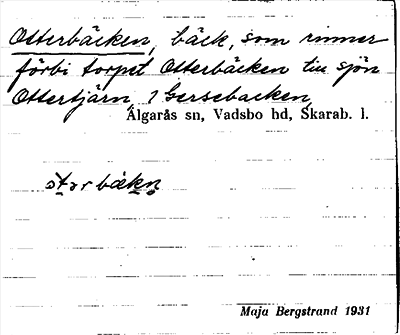 Otterbäcken, bäck, som rinner
förbi torpet Otterbäcken till sjön
Ottertjärn, 1 Gersebacken,
Älgarås sn, Vadsbo hd, Skarab. l.
ơtərbäkn̥
Maja Bergstrand 1931